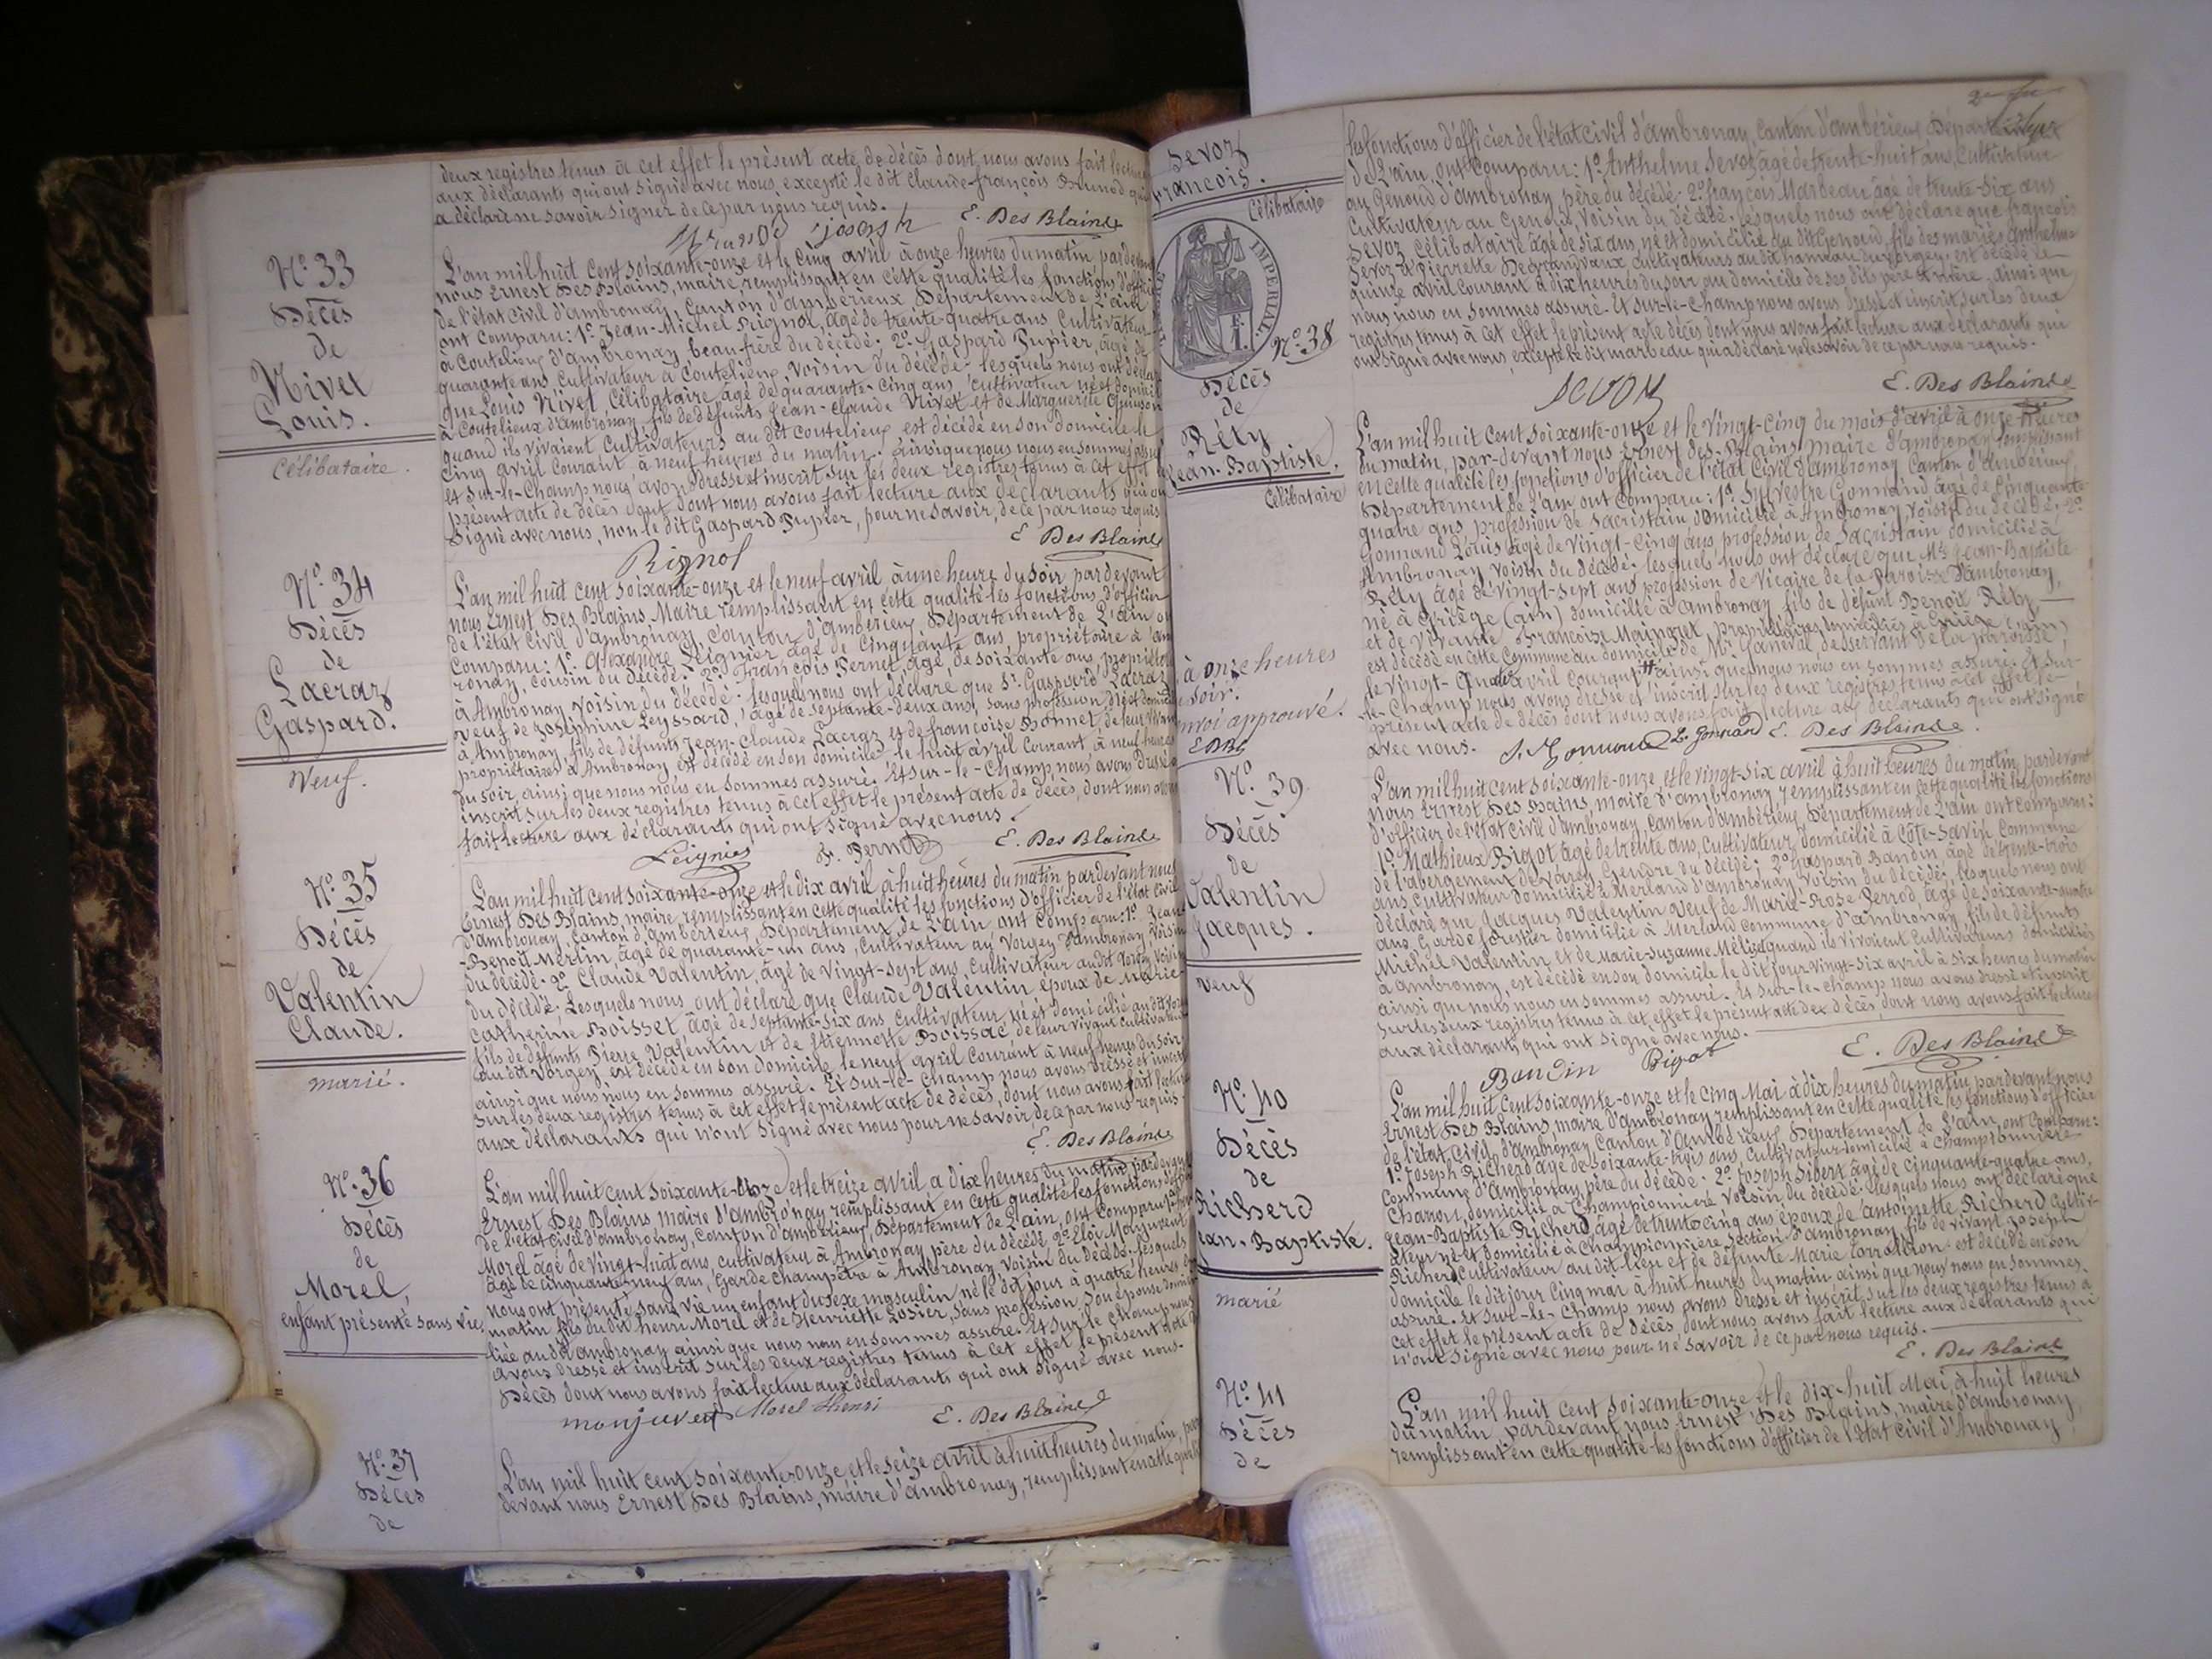 deux registres tenus à cet effet le présent acte de décès dont nous avons fait lecture
aux déclarants qui ont signé avec nous, excepté le dit Claude-françois Brunod qui
a déclaré ne savoir signer de ce par nous requis.
joseph E. Des Blains
N°. 33
Décès
de
Nivet
Louis.
Célibataire.
L'an mil huit cent soixante-onze et le cinq avril à onze heures du matin, pardevant
nous Ernest Des Blains, maire, remplissant en cette qualité les fonctions d'officier
de l'état civil d'ambronay, Canton d'ambérieux Département de L'ain
ont comparu: 1°. Jean-Michel Rignol, âgé de trente-quatre ans Cultivateur
à Coutelieux d'ambronay, beau-frère du décédé. 2°. Gaspard Pupier, âgé de
quarante ans Cultivateur à Coutelieux, voisin du décédé. lesquels nous ont déclaré
que Louis Nivet, Célibataire, âgé de quarante-cinq ans, cultivateur né et domicilié
à Coutelieux d'ambronay, fils de défunts Jean-Claude Nivet et de Marguerite Quinson
quand ils vivaient Cultivateurs au dit Coutelieux est décédé en son domicile le
cinq avril courant à neuf heures du matin. ainsi que nous nous en sommes assuré
Et sur-le-champ nous avons dressé et inscrit sur les deux registres tenus à cet effet le
présent acte de décès dont nous avons fait lecture aux déclarants qui ont
signé avec nous, non le dit Gaspard Pupier, pour ne savoir, de ce par nous requis
Rignol E. Des Blains
N°. 34
Décès
de
Lacraz
Gaspard.
Veuf.
L'an mil huit cent soixante-onze et le neuf avril à une heure du soir, pardevant
nous Ernest Des Blains Maire remplissant en cette qualité les fonctions d'officier
de l'état Civil d'ambronay, Canton d'ambérieux Département de L'ain ont
Comparu: 1°. Alexandre Leignier âgé de Cinquante ans, propriétaire à amb
ronay, cousin du décédé. 2°. François Pernet, âgé de soixante ans, propriétaire
à Ambronay voisin du décédé. lesquels nous ont déclaré que Sr. Gaspard Lacraz
veuf de Joséphine Leyssard, âgé de septante-deux ans, sans profession, né et domicilié
à Ambronay, fils de défunts Jean-Claude Lacraz et de françoise Bonnet, de leur vivant
propriétaires à Ambronay est décédé en son domicile le huit avril courant, à neuf heures
du soir, ainsi que nous nous en sommes assuré. Et sur-le-champ nous avons dressé
inscrit sur les deux registres tenus à cet effet le présent acte de décès, dont nous avons
fait lecture aux déclarants qui ont signé avec nous.
Leignier F. Pernet E. Des Blains
N°. 35
Décès
de
Valentin
Claude.
marié.
L'an mil huit cent soixante-onze et le dix avril à huit heures du matin pardevant nous
Ernest Des Blains, maire, remplissant en cette qualité les fonctions d'officier de l'état civil
d'ambronay, Canton d'ambérieux, Département de L'ain ont comparu: 1°. Jean
-Benoît Merlin, âgé de quarante-un ans, Cultivateur au Vorgey d'ambronay, voisin
du décédé. 2°. Claude Valentin, âgé de vingt-sept ans, Cultivateur au dit Vorgey, voisin
du décédé. Lesquels nous ont déclaré que Claude Valentin époux de Marie-
Catherine Boisset, âgé de septante-six ans Cultivateur, né et domicilié au dit Vorgey
fils de défunts Pierre Valentin et de Etiennette Boissac, de leur vivant cultivateurs
au dit Vorgey, est décédé en son domicile, le neuf avril courant à neuf heures du soir
ainsi que nous nous en sommes assuré. Et sur-le-champ nous avons dressé et inscrit
sur les deux registres tenus à cet effet le présent acte de décès, dont nous avons fait lecture
aux déclarants qui n'ont signé avec nous pour ne savoir, de ce par nous requis.
E. Des Blains
N°. 36
Décès
de
Morel,
enfant présenté sans vie
L'an mil huit cent soixante-onze et le treize avril a dix heures du matin, pardevant
Ernest Des Blains, maire d'ambronay remplissant en cette qualité les fonctions d'officier
de l'état civil d'ambronay, Canton d'ambérieux, Département de L'ain, ont comparu
Morel âgé de vingt-huit ans, cultivateur à Ambronay père du décédé 2°. Eloi Monjuvent
âgé de cinquante-neuf ans, Garde champêtre à Ambronay voisin du décédé. lesquels
nous ont présenté sans vie un enfant du sexe masculin, né le dit jour à quatre heures du
matin fils du dit henri Morel et de Henriette Losier, sans profession, son épouse domici
liée au dit ambronay ainsi que nous nous en sommes assuré. Et sur le champ nous
avons dressé et inscrit sur les deux registres tenus à cet effet le présent acte de
Décès dont nous avons fait lecture aux déclarants qui ont signé avec nous.
monjuvent Morel henri E. Des Blains
N°. 37
Décès
de
L'an mil huit cent soixante-onze et le seize avril à huit heures du matin, par
devant nous Ernest Des Blains, maire d'ambronay, remplissant en cette qualité
Sevoz
francois.
Célibataire
IMPERIAL
les fonctions d'officier de l'état civil d'ambronay, Canton d'ambérieux Département
de L'ain, ont Comparu: 1°. Anthelme Sevoz âgé de trente-huit ans, Cultivateur
au Genoud d'ambronay, père du décédé. 2°. françois Marbeau âgé de trente-six ans
Cultivateur au Genoud, voisin du décédé. lesquels nous ont déclaré que françois
Sevoz célibataire âgé de six ans, né et domicilié au dit Genoud, fils des mariés anthelme
Sevoz & Pierrette Desgranvaux cultivateurs au dit hameau du vorgey, est décédé le
quinze avril courant à dix heures du soir au domicile de ses dits père et mère, ainsi que
nous nous en sommes assuré. Et sur-le-champ nous avons dressé et inscrit sur les deux
registres tenus à cet effet le présent acte décès dont nous avons fait lecture aux déclarants qui
ont signé avec nous, excepté le dit marbeau qui a déclaré ne le savoir de ce par nous requis.
sevoz E. Des Blains
N°. 38
Décès
de
Réty
Jean-Baptiste.
Célibataire
L'an mil huit cent soixante-onze et le vingt-cinq du mois d'avril à onze heures
du matin, par-devant nous Ernest des-Blains, maire d'ambronay remplissant
en cette qualité les fonctions d'officier de l'état Civil d'ambronay Canton d'ambérieux,
Département de l'ain ont comparu: 1°. Sylvestre Gonnand âgé de Cinquante
quatre ans profession de Sacristain domicilié à Ambronay voisin du décédé. 2°.
Gonnand Louis âgé de vingt-cinq ans, profession de Sacristain domicilié à
Ambronay voisin du décédé. lesquels nous ont déclaré que Mr. Jean-Baptiste
Réty âgé de vingt-sept ans profession de Vicaire de la Paroisse d'ambronay,
né à Griège (ain) domicilié à ambronay, fils de défunt Benoît Réty
et de vivante Françoise Maingret, propriétaires domiciliés à Griège (ain)
est décédé en cette Commune au domicile de Mr. Ganeval, desservant de la paroisse,
le vingt-quatre avril courant ainsi que nous nous en sommes assuré. Et sur-
le-champ nous avons dressé et inscrit sur les deux registres tenus à cet effet le
présent acte de décès dont nous avons fait lecture aux déclarants qui ont signé
avec nous. S. Gonnand L. Gonnand E. Des Blains
à onze heures
soir.
envoi approuvé.
N°. 39
Décès
de
Valentin
Jacques.
Veuf
L'an mil huit cent soixante-onze et le vingt-six avril à huit heures du matin, pardevant
nous Ernest Des Blains, maire d'ambronay, remplissant en cette qualité les fonctions
d'officier de l'état civil d'ambronay, Canton d'ambérieux, Département de L'ain ont comparu:
1°. Mathieux Bigot âgé de trente ans, cultivateur, domicilié à Côte-Savin commune
de l'abergement de Varey, Gendre du décédé; 2°. Gaspard Baudin âgé de trente-trois
ans, Cultivateur domicilié à Merland d'ambronay voisin du décédé, lesquels nous ont
déclaré que Jacques Valentin veuf de Marie-Rose Perrod, âgé de soixante-quatre
ans, Garde forestier domicilié à Merland commune d'ambronay, fils de défunts
Michel Valentin et de Marie-Suzanne quand ils vivaient Cultivateurs domiciliés
à Ambronay, est décédé en son domicile le dit jour vingt-six avril à six heures du matin
ainsi que nous nous en sommes assuré. Et sur-le-champ nous avons dressé et inscrit
sur les deux registres tenus à cet effet le présent acte de décès, dont nous avons fait lecture
aux déclarants qui ont signé avec nous.
Baudin Bigot E. Des Blains
N°. 40
Décès
de
Richerd
Jean-Baptiste.
marié
L'an mil huit cent soixante-onze et le cinq Mai à dix heures du matin, pardevant nous
Ernest Des Blains, maire d'ambronay remplissant en cette qualité les fonctions d'officier
de l'état civil d'ambronay Canton d'ambérieux, Département de L'ain, ont comparu:
1°. Joseph Richerd âgé de soixante-trois ans, Cultivateur domicilié à Championnière
commune d'ambronay, père du décédé. 2°. Joseph Sibert âgé de cinquante-quatre ans,
Charron, domicilié à Championnière voisin du décédé. lesquels nous ont déclaré que
Jean-Baptiste Richerd âgé de trente-cinq ans époux de antoinette Richerd cultiva-
teur né et domicilié à Championnière section d'ambronay, fils de vivant Joseph
Richerd Cultivateur au dit lieu et de défunte Marie est décédé en son
domicile le dit jour Cinq mai à huit heures du matin ainsi que nous nous en sommes
assuré. Et sur-le-champ nous avons dressé et inscrit sur les deux registres tenus à
cet effet le présent acte de décès dont nous avons fait lecture aux déclarants qui
n'ont signé avec nous pour ne savoir de ce par nous requis.
E. Des Blains
N°. 41
Décès
de
L'an mil huit cent soixante-onze et le dix-huit Mai, à huit heures
du matin, pardevant nous Ernest Des Blains, maire d'ambronay,
remplissant en cette qualité les fonctions d'officier de l'état civil d'Ambronay,